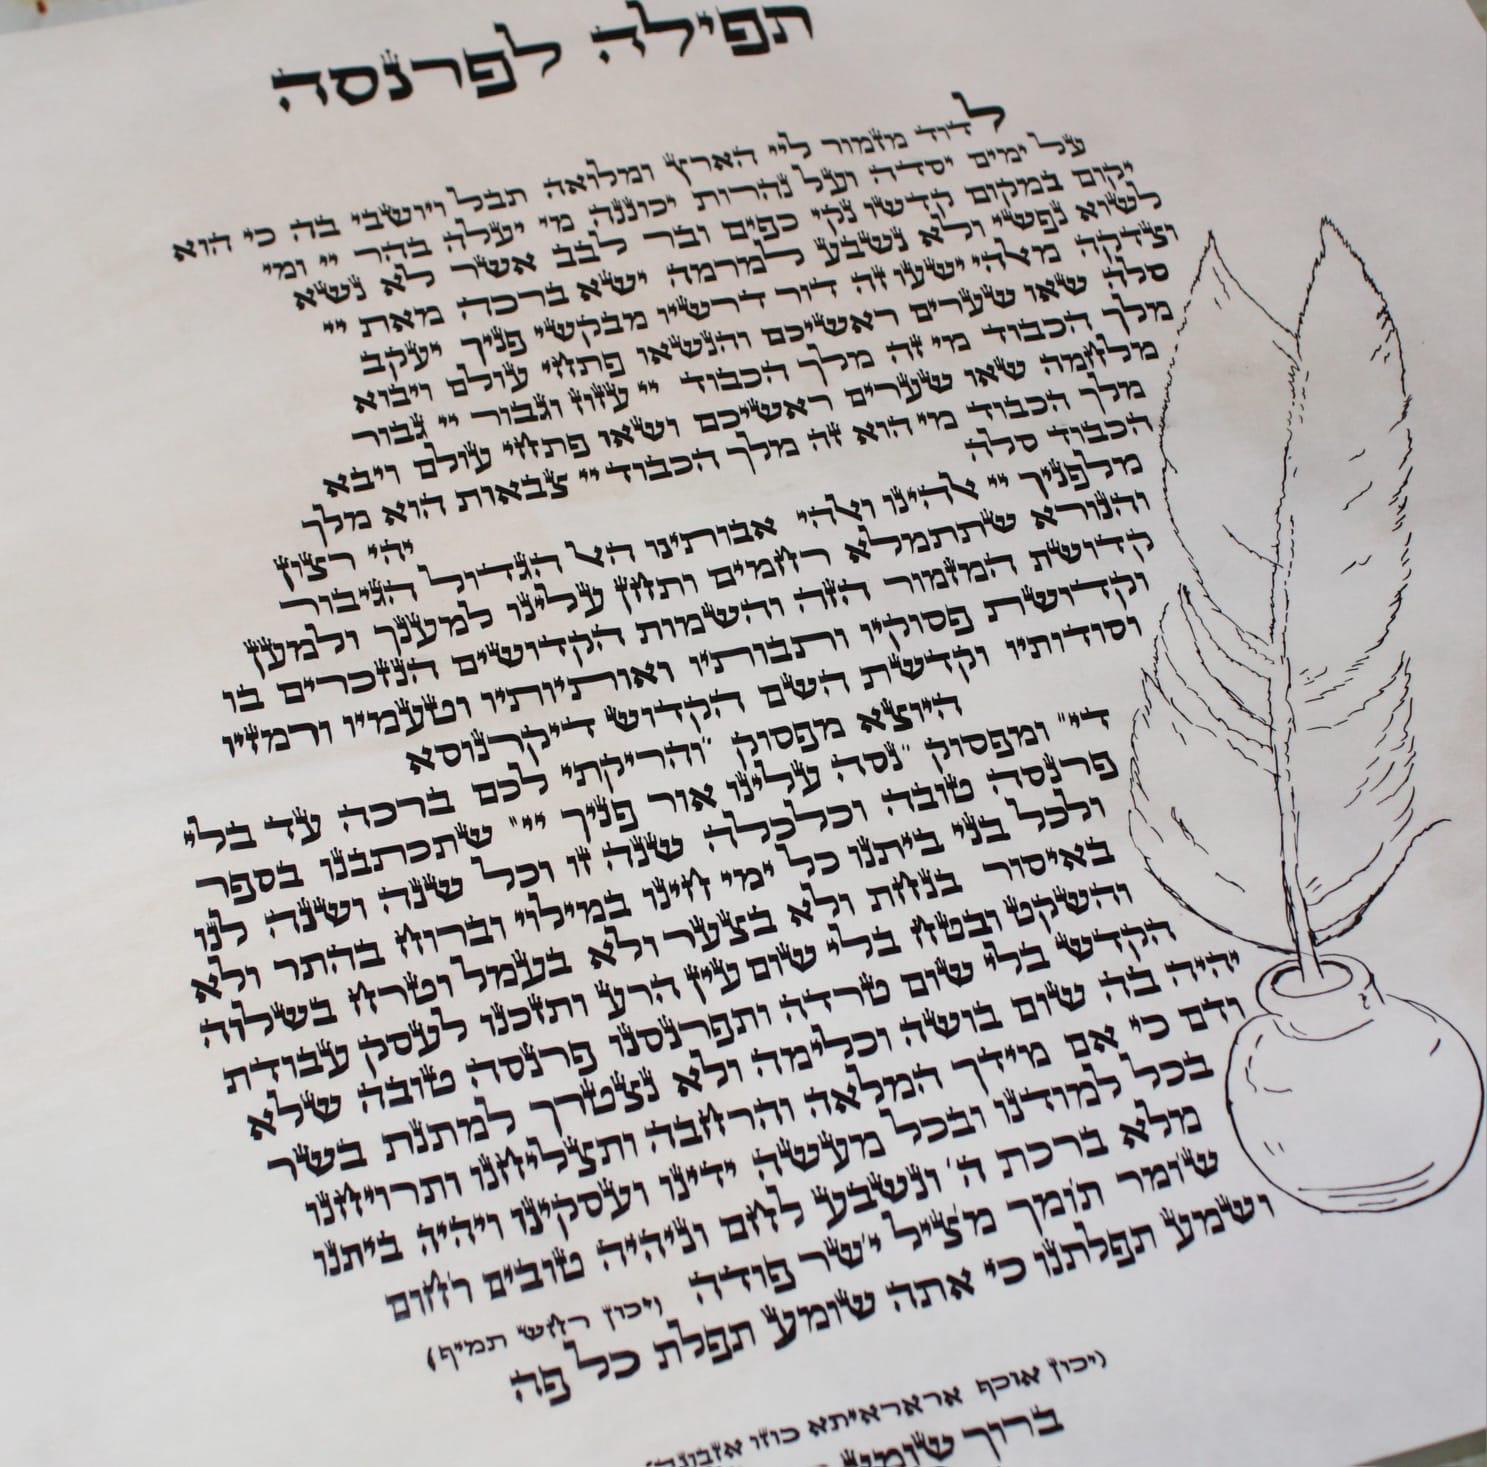 תפילה לפרנסה
לדוד מזמור ליי הארץ ומלואה תבל ויושבי בה כי הוא
על ימים יסדה ועל נהרות יכוננה מי יעלה בהר יי ומי
יקום במקום קדשו נקי כפים ובר לבב אשר לא נשא
לשוא נפשי ולא נשבע למרמה ישא ברכה מאת יי
וצדקה מאלהי ישעו זה דור דרשיו מבקשי פניך יעקב
סלה שאו שערים ראשיכם והנשאו פתחי עולם ויבוא
מלך הכבוד מי זה מלך הכבוד יי עזוז וגבור יי גבור
מלחמה שאו שערים ראשיכם ושאו פתחי עולם ויבא
מלך הכבוד מי הוא זה מלך הכבוד יי צבאות הוא מלך
הכבוד סלה יהי רצון
מלפניך יי אלהינו ואלהי אבותינו האל הגדול הגיבור
והנורא שתתמלא רחמים ותחן עלינו למענך ולמען
קדושת המזמור הזה והשמות הקדושים הנזכרים בו
וקדושת פסוקיו ותבותיו ואותיותיו וטעמיו ורמזיו
וסודותיו וקדשת השם הקדוש דיקרנוסא
היוצא מפסוק "והריקתי לכם ברכה עד בלי
די" ומפסוק "נסה עלינו אור פניך יי" שתכתבנו בספר
פרנסה טובה וכלכלה שנה זו וכל שנה ושנה לנו
ולכל בני ביתנו כל ימי חינו במילוי וברוח בהתר ולא
באיסור בנחת ולא בצער ולא בעמל וטרח בשלוה
והשקט ובטח בלי שום עין הרע ותזכנו לעסק עבודת
הקדש בלי שום טרדה ותפרנסנו פרנסה טובה שלא
יהיה בה שום בושה וכלימה ולא נצטרך למתנת בשר
ודם כי אם מידך המלאה והרחבה ותצליחנו ותרויחנו
בכל למודנו ובכל מעשה ידינו ועסקינו ויהיה ביתנו
מלא ברכת ה' ונשבע לחם וניהיה טובים רחום
שומר תומך מציל ישר פודה (ויכון רחש תמיף)
ושמע תפלתנו כי אתה שומע תפלת כל פה
(יכון אוכף אראראיתא כוזו אזבוגה)
ברוך שומע